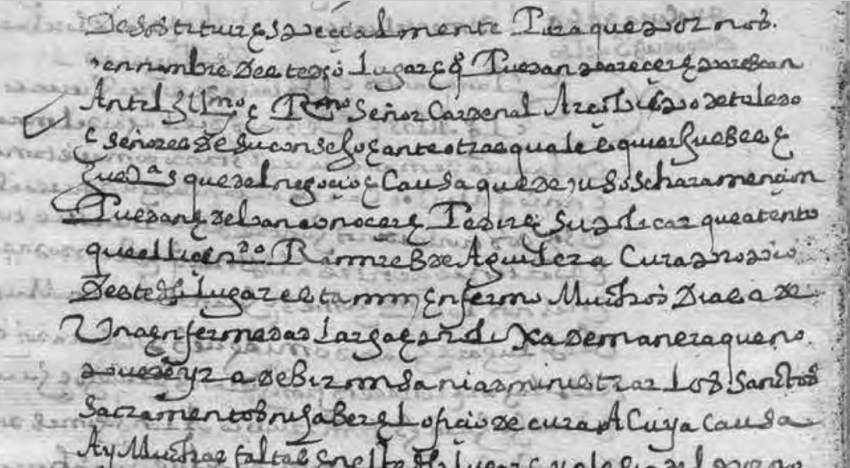 De sostituir espeçialmente Para que por nos.
y en nonbre deste dho lugar e Puedan parecer e parescan
Ante el yllmo e Rmo señor Cardenal Arçobispo de toledo
e señores de su consejo e ante otras quales quier Jueses e
Juezas que del negoçio e Causa que de yuso se hara mençion
Puedan e deban conoçer e Pedir e suplicar que atento
que el liçendo Ramires de Aguilera Cura propio
deste dho lugar esta muy enfermo Muchos Dias a de
Una enfermedad larga e de manera que no
puede yr a desir misa ni administrar los santos
sacramentos ni haser el ofiçio de cura A Cuya Causa
Ay Muchas faltas en el dho lugar